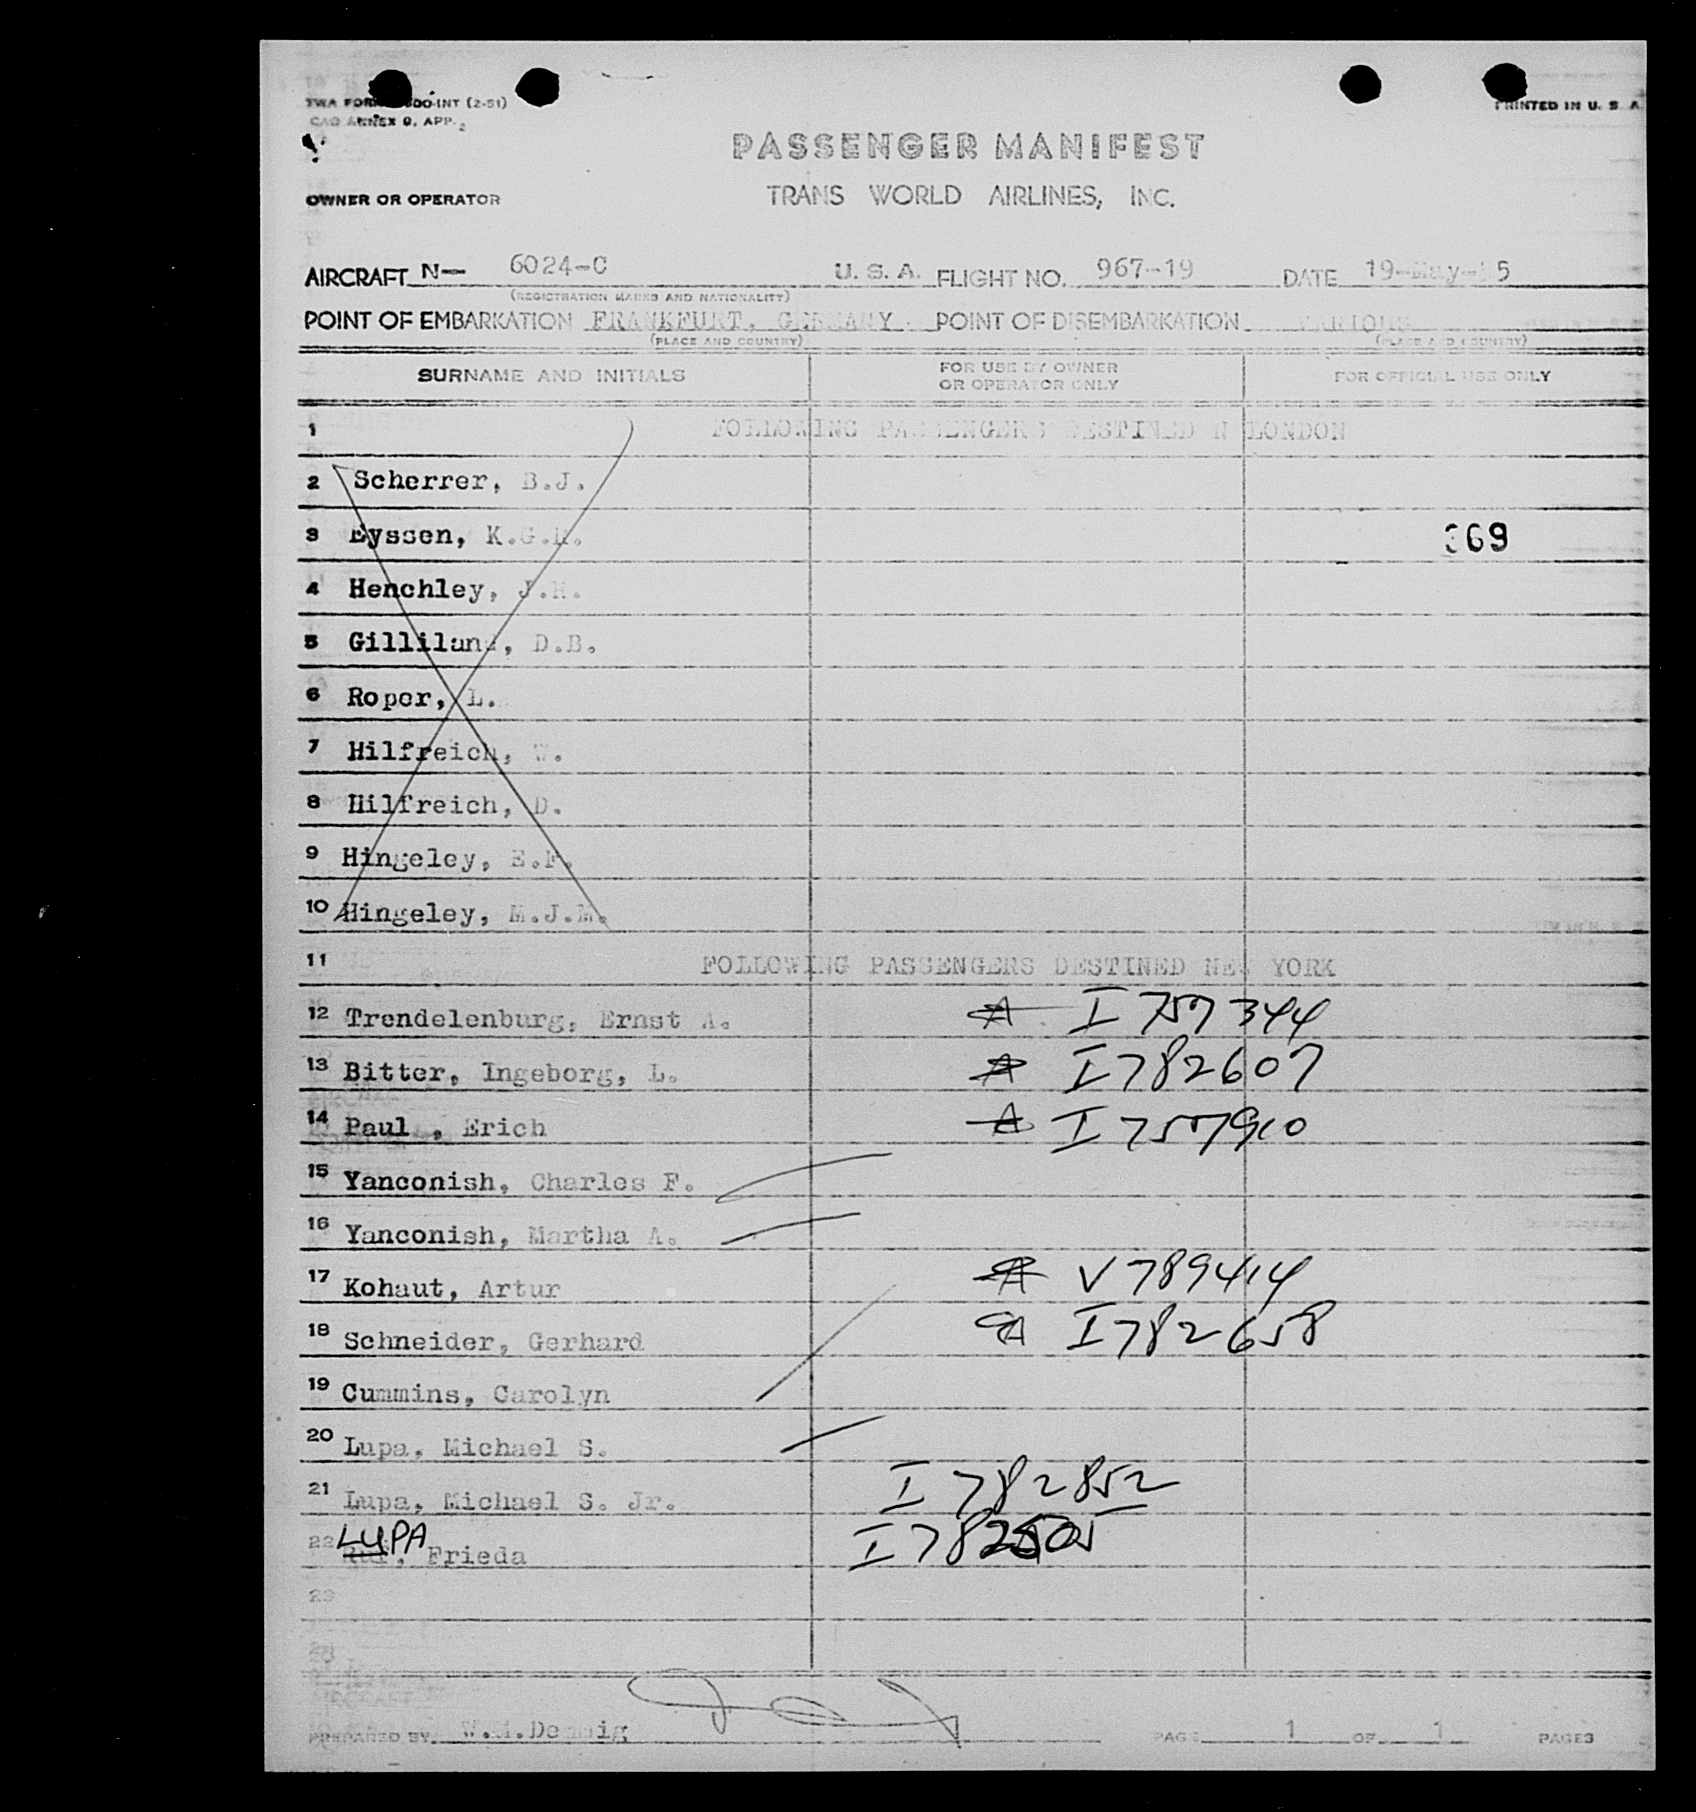 TWA FORM INT (2-51)
PRINTED IN U. S. A.
ANNEX 9, APP. 2
PASSENGER MANIFEST
OWNER OR OPERATOR
TRANS WORLD AIRLINES, INC.
AIRCRAFT N— 6024-C U. S. A. FLIGHT NO. 967-19 DATE 19-May- 5
(REGISTRATION MARKS AND NATIONALITY)
POINT OF EMBARKATION FRANKFURT, GERMANY. POINT OF DISEMBARKATION VARIOUS
(PLACE AND COUNTRY) (PLACE AND COUNTRY)
SURNAME AND INITIALS FOR USE BY OWNER OR OPERATOR ONLY FOR OFFICIAL USE ONLY
1 FOLLOWING PASSENGERS DESTINED LONDON
2 Scherrer, B.J.
3 Eyssen, K.G. 369
4 Henchley, J.
5 Gilliland, D.B.
6 Roper, L.
7 Hilfreich, W.
8 Hilfreich, D.
9 Hingeley, E.F.
10 Hingeley, M.J.M.
11 FOLLOWING PASSENGERS DESTINED NEW YORK
12 Trendelenburg, Ernst A. A I 757344
13 Bitter, Ingeborg, L. A I 782607
14 Paul , Erich A I 757910
15 Yanconish, Charles F.
16 Yanconish, Martha A.
17 Kohaut, Artur A V 789414
18 Schneider, Gerhard A I 782658
19 Cummins, Carolyn
20 Lupa, Michael S.
21 Lupa, Michael S. Jr. I 782852
22 LUPA Ruf, Frieda I 782505
23
24
PREPARED BY W.M. PAGE 1 OF 1 PAGES